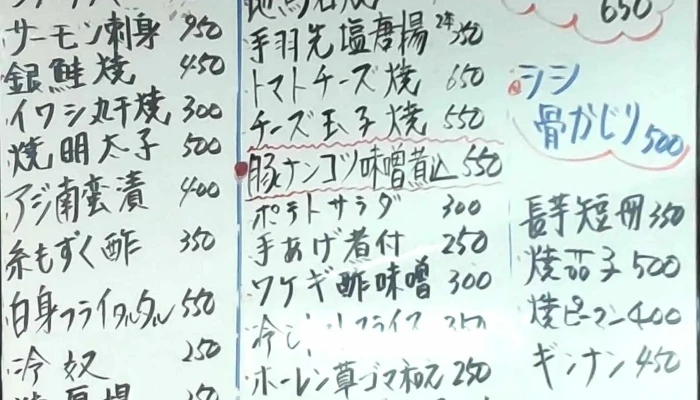 サーモン刺身 950
銀鮭焼 450
イワシ丸干焼 300
焼明太子 500
アジ南蛮漬 400
糸もずく酢 350
白身フライタルタル 550
冷奴 250
手羽先塩唐揚 2本 350
トマトチーズ焼 650
チーズ玉子焼 550
豚ナンコツ味噌煮込 550
ポテトサラダ 300
手あげ煮付 250
ワケギ酢味噌 300
ホーレン草ゴマ和え 250
650
シシ
骨かじり 500
長芋短冊 350
焼茄子 500
焼ピーマン 400
ギンナン 450